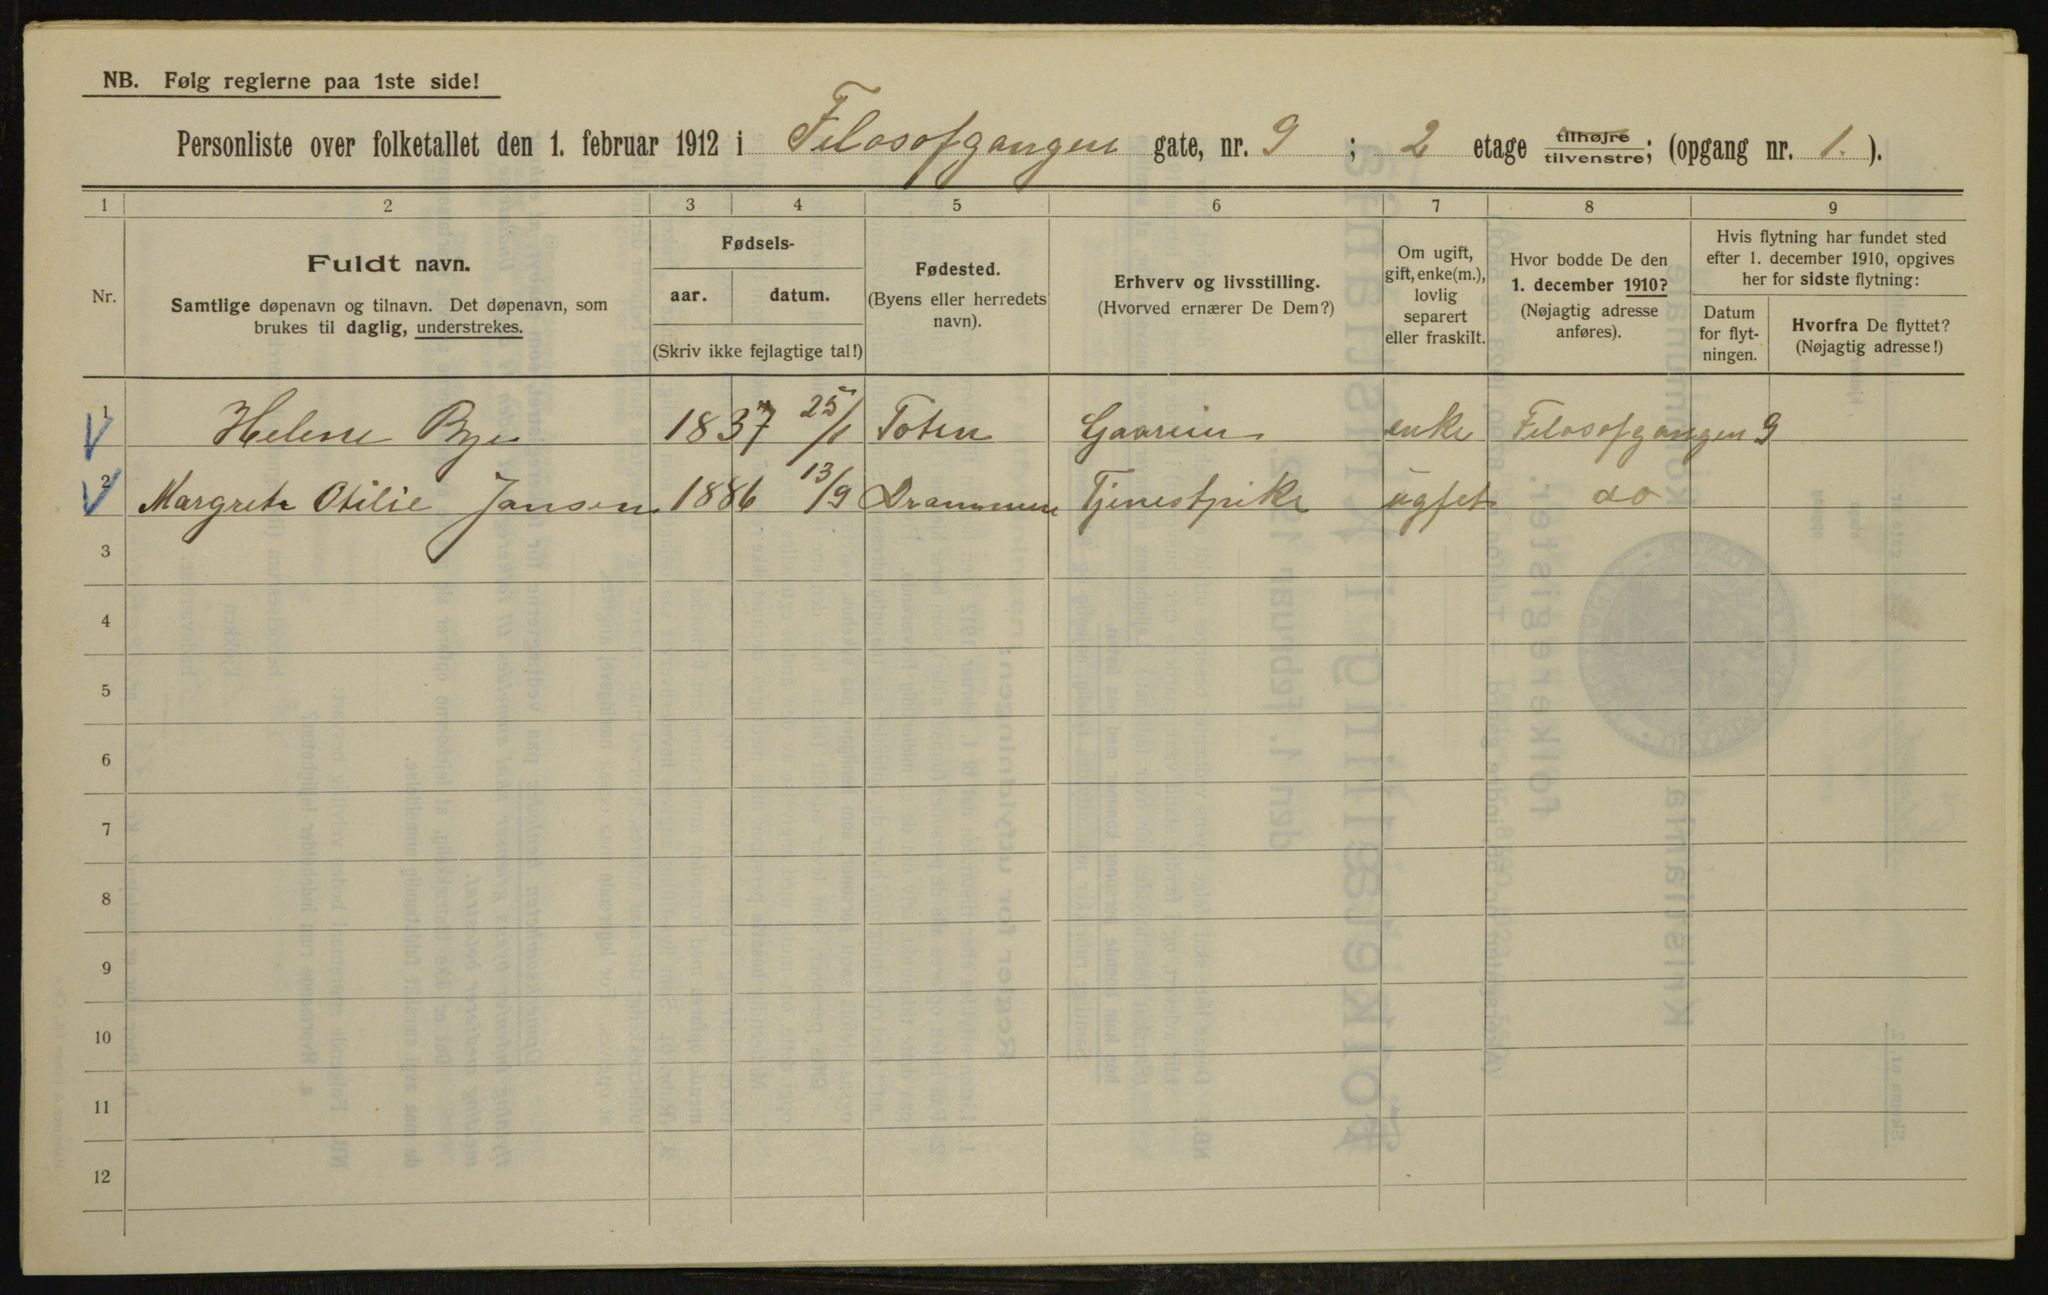 NB. Følg reglerne paa 1ste side!
Personliste over folketallet den 1. februar 1912 i Filosofgangen gate, nr. 9 ; 2 etage tilhøjre tilvenstre; (opgang nr. 1. ).
1 2 3 4 5 6 7 8 9
Nr.
Fuldt navn.
Samtlige døpenavn og tilnavn. Det døpenavn, som
brukes til daglig, understrekes.
Fødsels-
aar. datum.
(Skriv ikke fejlagtige tal!)
Fødested.
(Byens eller herredets
navn).
Erhverv og livsstilling.
(Hvorved ernærer De Dem?)
Om ugift,
gift, enke(m.),
lovlig
separert
eller fraskilt.
Hvor bodde De den
1. december 1910?
(Nøjagtig adresse
anføres).
Hvis flytning har fundet sted
efter 1. december 1910, opgives
her for sidste flytning:
Datum
for flyt-
ningen.
Hvorfra De flyttet?
(Nøjagtig adresse!)
1 Helene Bye 1837 25/1 Toten enke Filosofgangen 9
2 Margrete Otilie Jansen 1886 13/9 Drammen Tjenestpike do
3
4
5
6
7
8
9
10
11
12